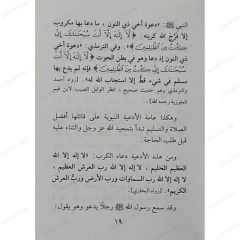 النبي ﷺ: «دعوة أخي ذي النون، ما دعا بها مكروب
إلا فرَّج الله كربته: ﴿لَّا إِلَٰهَ إِلَّا أَنتَ سُبْحَٰنَكَ إِنِّي
كُنتُ مِنَ ٱلظَّٰلِمِينَ﴾». وفي الترمذي: «دعوة أخي
ذي النون إذ دعا وهو في بطن الحوت ﴿لَّا إِلَٰهَ
إِلَّا أَنتَ سُبْحَٰنَكَ إِنِّي كُنتُ مِنَ ٱلظَّٰلِمِينَ﴾ فإنه لم يدع بها
مسلم في شيء قط إلا استجاب الله له». [رواه أحمد
والترمذي وهو حديث صحيح، انظر الوابل الصيب لابن قيم
الجوزية رحمه الله].
وهكذا عامة الأدعية النبوية على قائلها أفضل
الصلاة والتسليم تبدأ بتمجيد الله عز وجل والثناء عليه
قبل طلب الحاجة.
ومن هذه الأدعية دعاء الكرب: «لا إله إلا الله
العظيم الحليم، لا إله إلا الله رب العرش العظيم،
لا إله إلا الله رب السماوات ورب الأرض ورب العرش
الكريم». [رواه البخاري].
وقد سمع رسول الله ﷺ رجلاً يدعو وهو يقول:
١٩